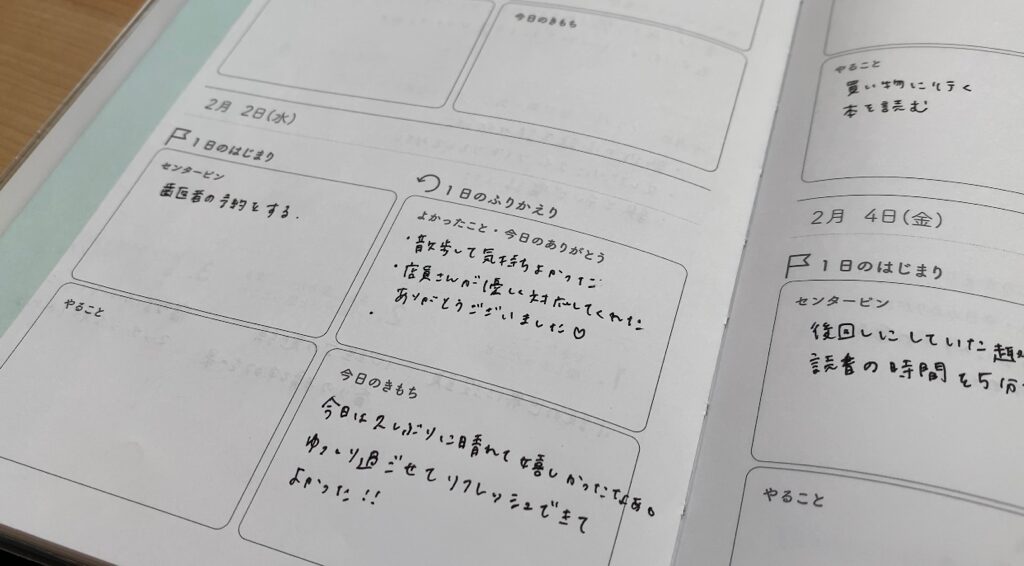 今日のきもち
2月 2日(水)
1日のはじまり
センターピン
歯医者の予約をする.
やること
1日のふりかえり
よかったこと・今日のありがとう
・散歩して気持ちよかった
・店員さんが優しく対応してくれた
ありがとうございました♡
・
今日のきもち
今日は久しぶりに晴れて嬉しかったなあ。
ゆっくり過ごせてリフレッシュできて
よかった!!
やること
買い物に行く
本を読む
2月 4日(金)
1日のはじまり
センターピン
後回しにしていた
読者の時間を5分
やること